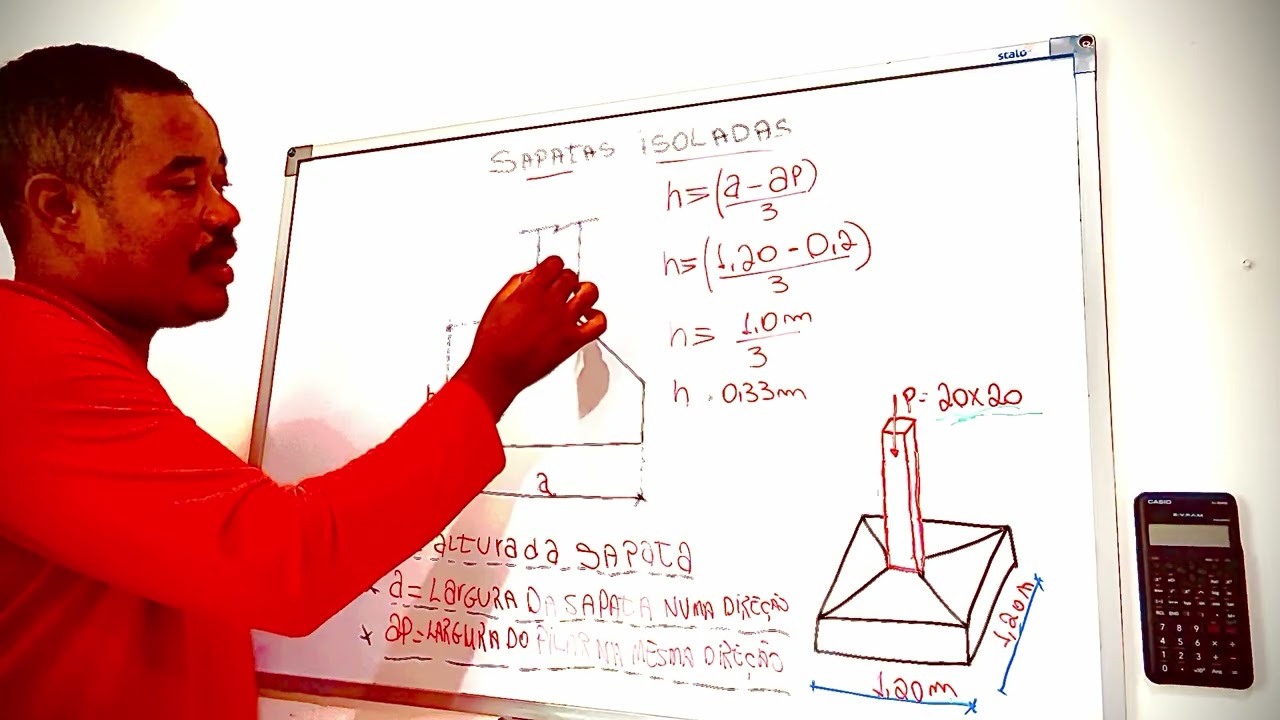 stalo
SAPATAS ISOLADAS
h≤(a-ap)
3
h≤(1,20-0,2)
3
h≤ 1,0m
3
h 0,33m
P=20x20
a
altura da SAPATA
a=LARGURA DA SAPATA NUMA DIREÇÃO
ap=LARGURA DO PILAR NA MESMA DIREÇÃO
1,20m
1,20m
CASIO
S-V.P.A.M.
7 8 9
4 5 6 × ÷
1 2 3 + -
0